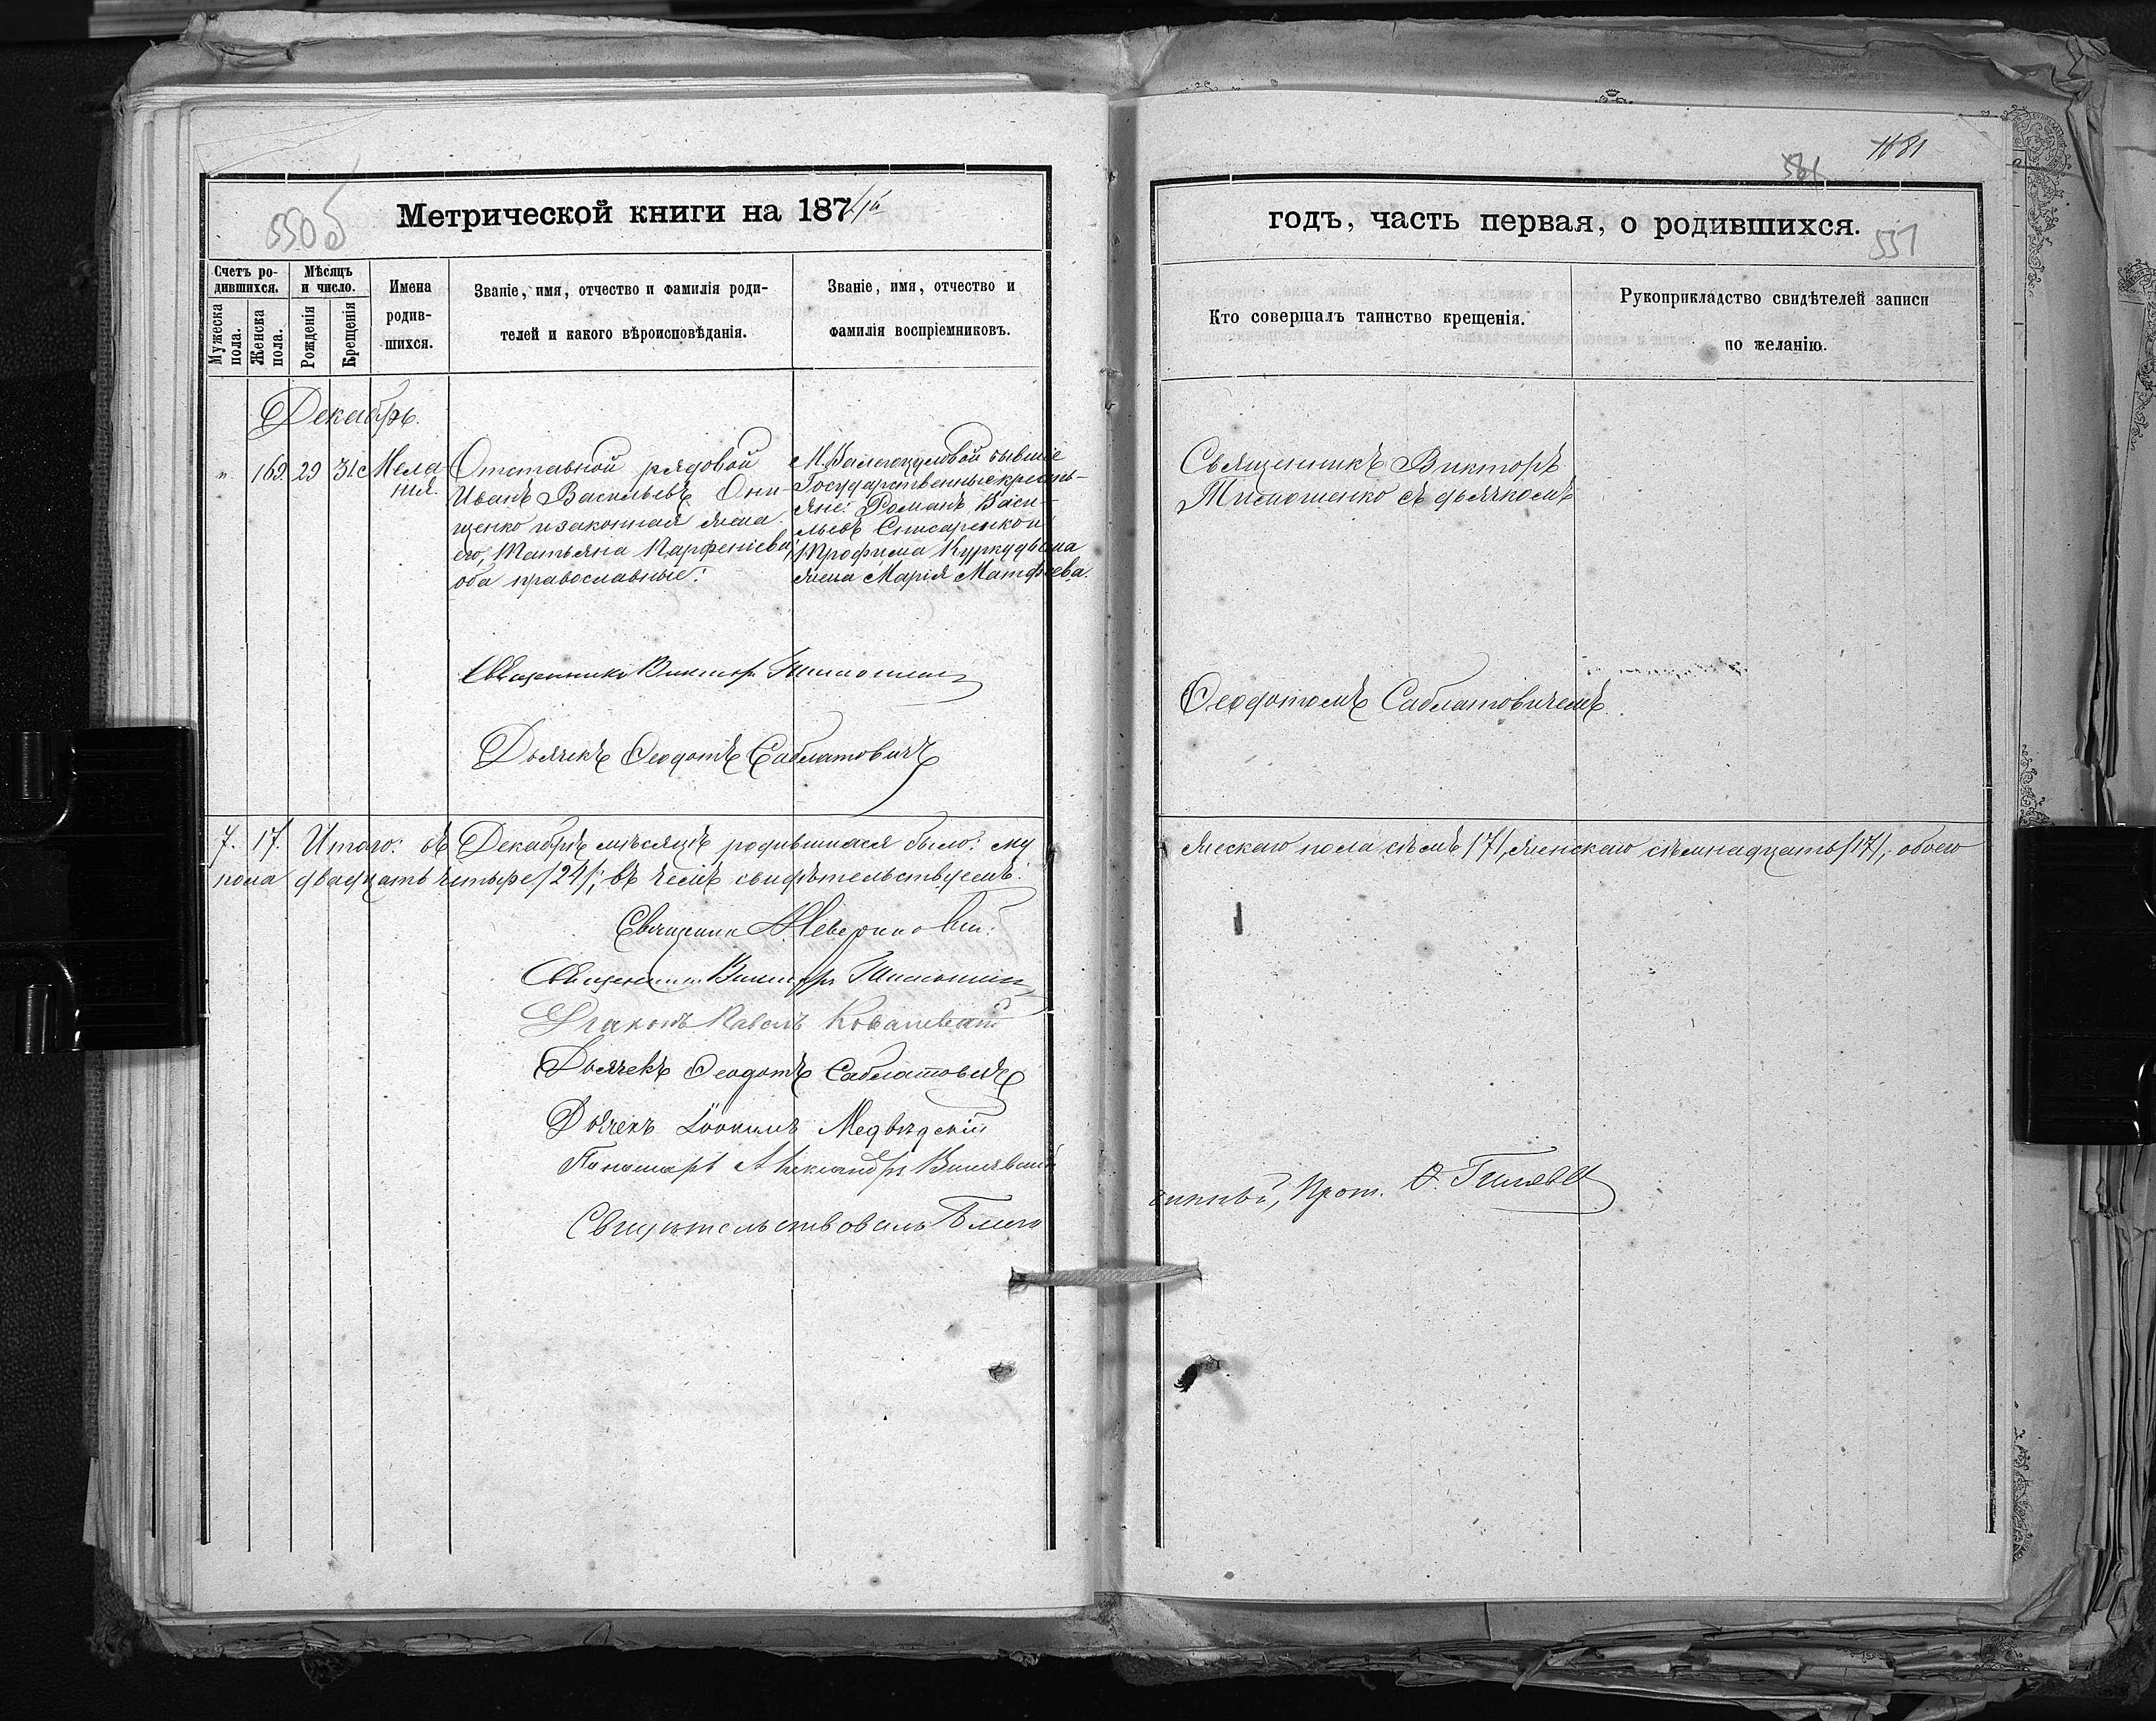 550б
Метрической книги на 187
Счетъ ро-
дившихся.
Мужеска
пола.
Женска
пола.
Мѣсяцъ
и число.
Рожденія
Крещенія
Имена
родив-
шихся.
Званіе, имя, отчество и фамилія роди-
телей и какого вѣроисповѣданія.
Званіе, имя, отчество и
фамилія воспріемниковъ.
Декабрь.
" 169. 29 31.
Мела
нія.
Отставной рядовой
Иванъ Васильевъ Они-
щенко и законная жена
его, Татьяна Парфеніева;
оба православные:
М. бывшіе
Государственные крестья-
яне: Романъ Васи-
льевъ Снисаренко и
Трофима жена
Марія Матфѣева.
Священникъ Викторъ Тимошенко
Дьячекъ Ѳеодотъ Саблатовичъ
7. 17. Итого: въ Декабрѣ мѣсяцѣ родившихся было: му
пола двадцать четыре /24/; въ чемъ свидѣтельствуемъ:
Священникъ
Священникъ Викторъ Тимошенко
Діаконъ Павелъ Ковалевскій
Дьячекъ Ѳеодотъ Саблатовичъ
Дьячекъ Іоакимъ Медвѣдскій
Пономарь Александръ
Свидѣтельствовалъ Благо
1181
561
годъ, часть первая, о родившихся.
551
Кто совершалъ таинство крещенія.
Рукоприкладство свидѣтелей записи
по желанію.
Священникъ Викторъ
Тимошенко съ дьячкомъ
Ѳеодотомъ Саблатовичемъ.
жескаго пола семь /7/, женскаго семнадцать /17/, обоего
чинный, Прот.